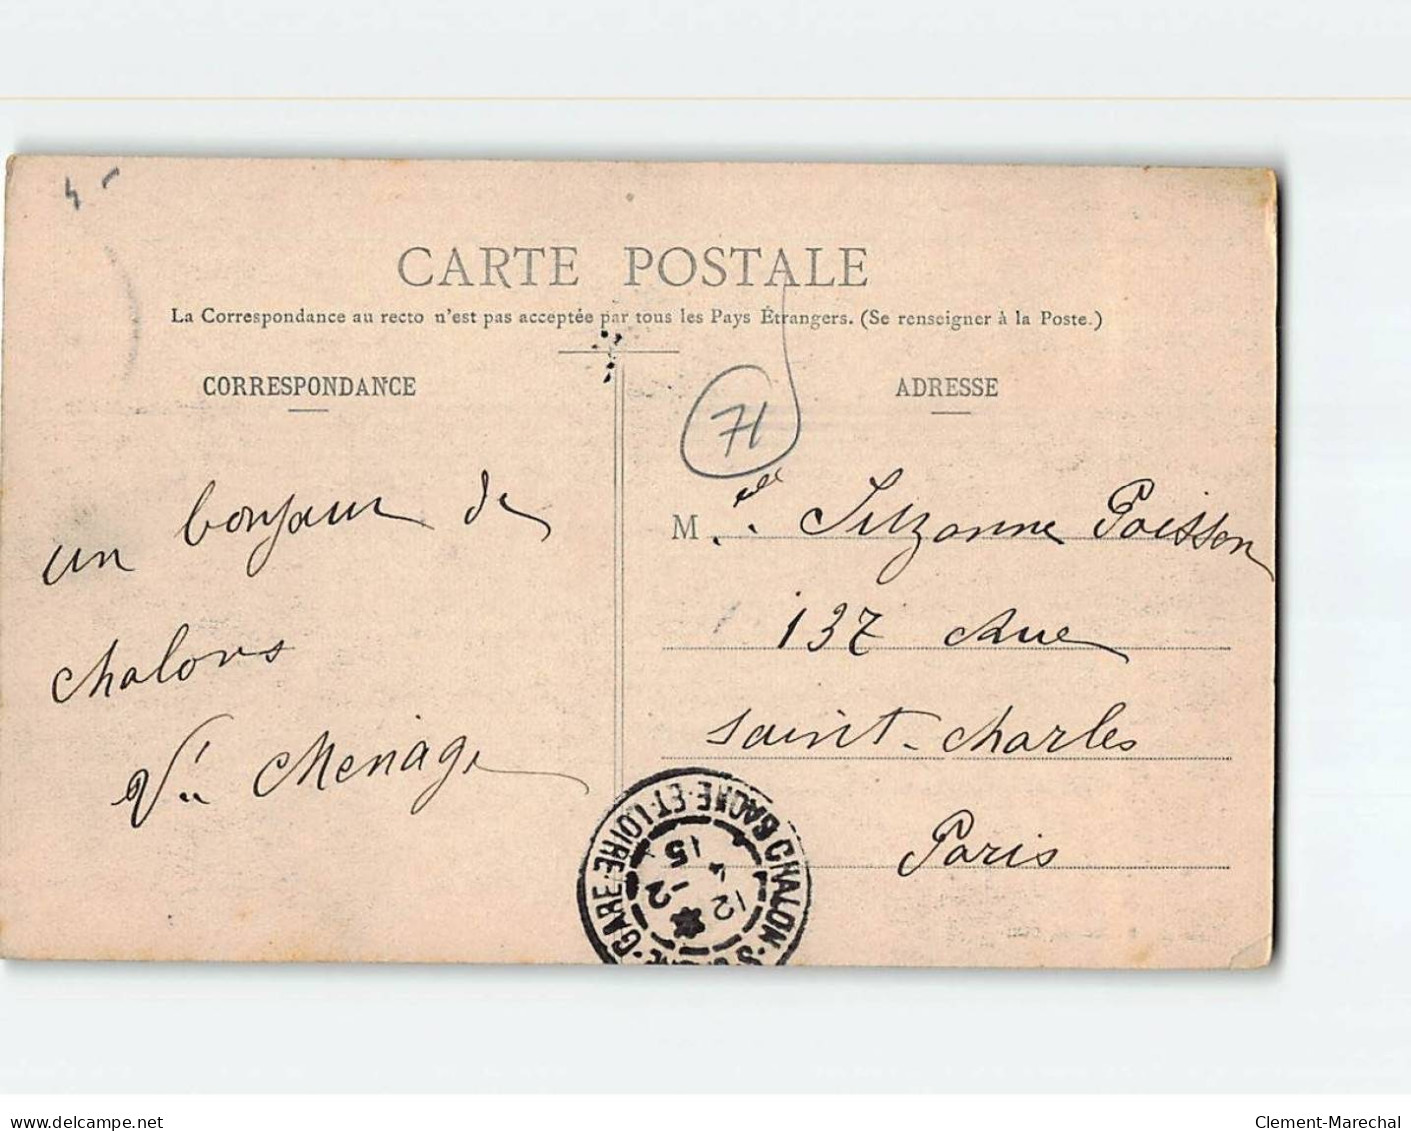 4
CARTE POSTALE
La Correspondance au recto n'est pas acceptée par tous les Pays Étrangers. (Se renseigner à la Poste.)
CORRESPONDANCE
ADRESSE
71
un bonjour de
chalons
Menage
Melle Suzanne Poisson
137 Rue
saint-charles
Paris
CHALON-S-SAONE-GARE
SAONE-ET-LOIRE
15
12 - 2
delcampe.net
Clement-Marechal